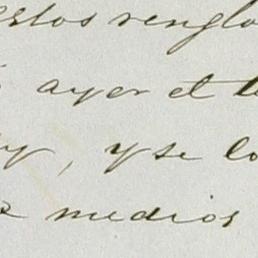 estos renglo
ayer et
y, y se lo
medios